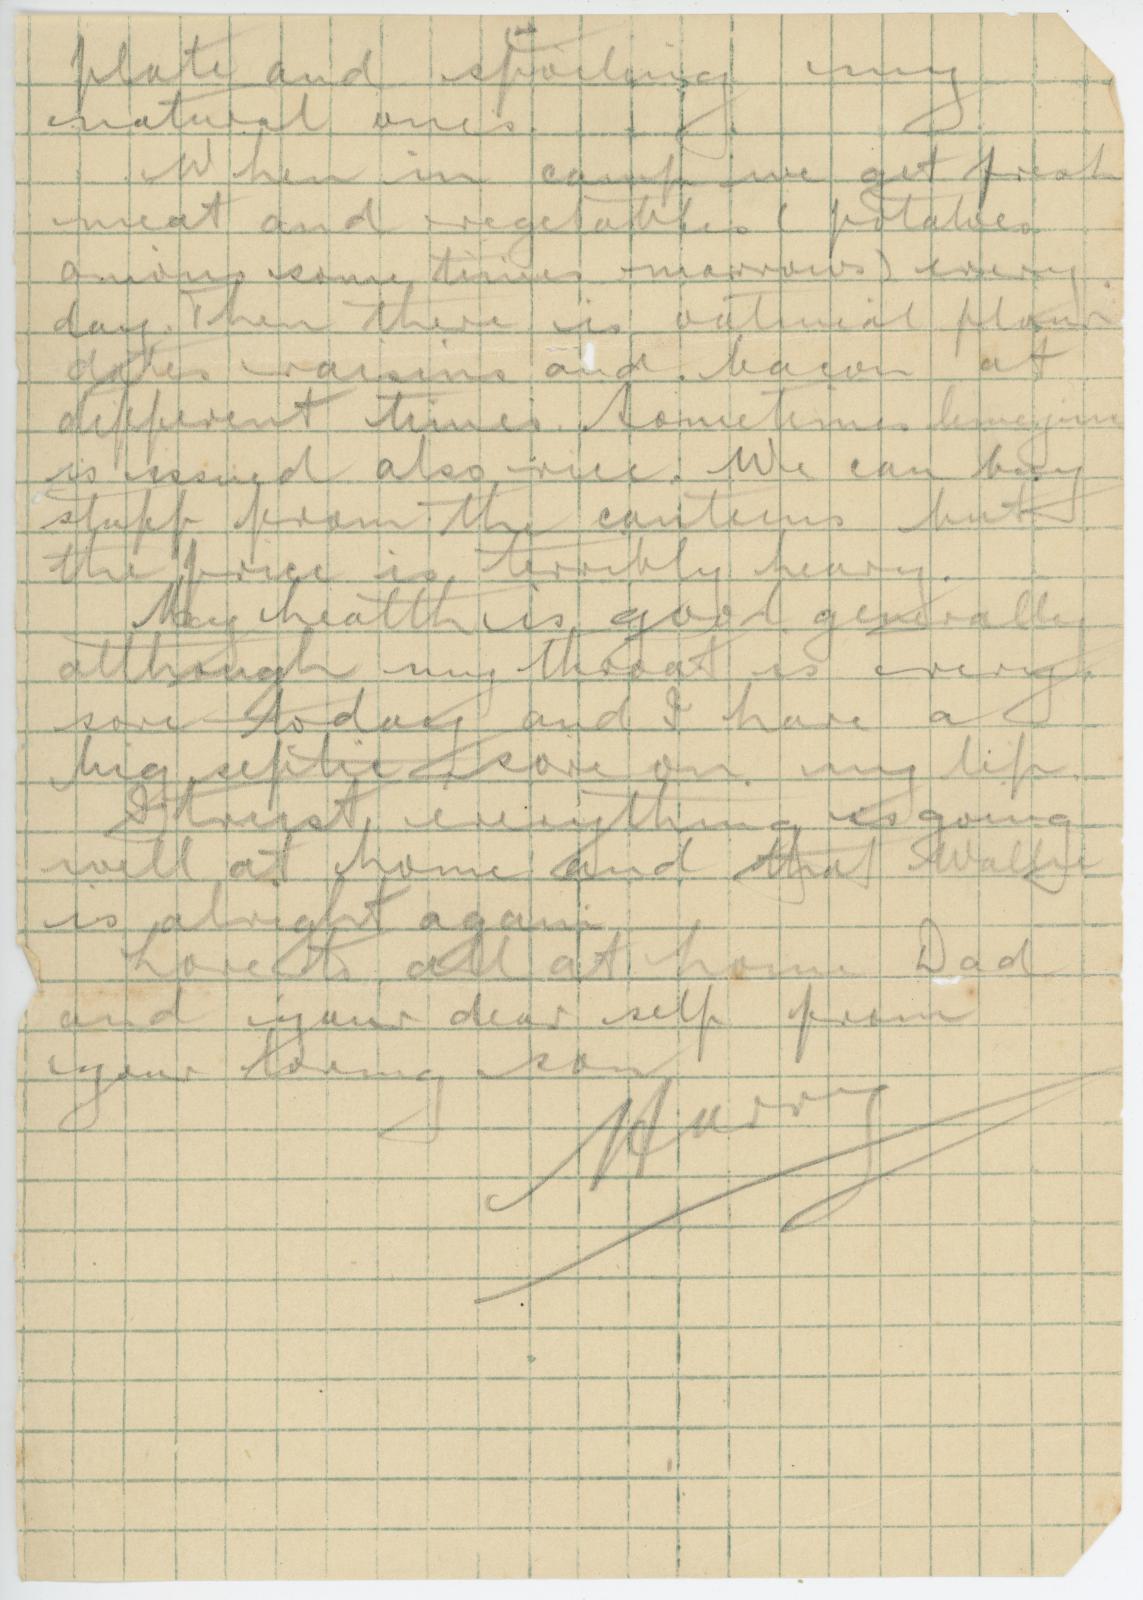 plate and spoiling my
natural ones.
When in camp we get fresh
meat and vegetables (potatoes
onions some times marrows) every
day. Then there is oatmeal flour
dates raisins and bacon at
different times. Sometimes limejuice
is issued also rice. We can buy
stuff from the canteens but
the price is terribly heavy.
My health is good generally
although my throat is very
sore today and I have a
big septic sore on my lip.
I trust everything is going
well at home and that Wallie
is alright again
Love to all at home Dad
and your dear self from
your loving son
Harry